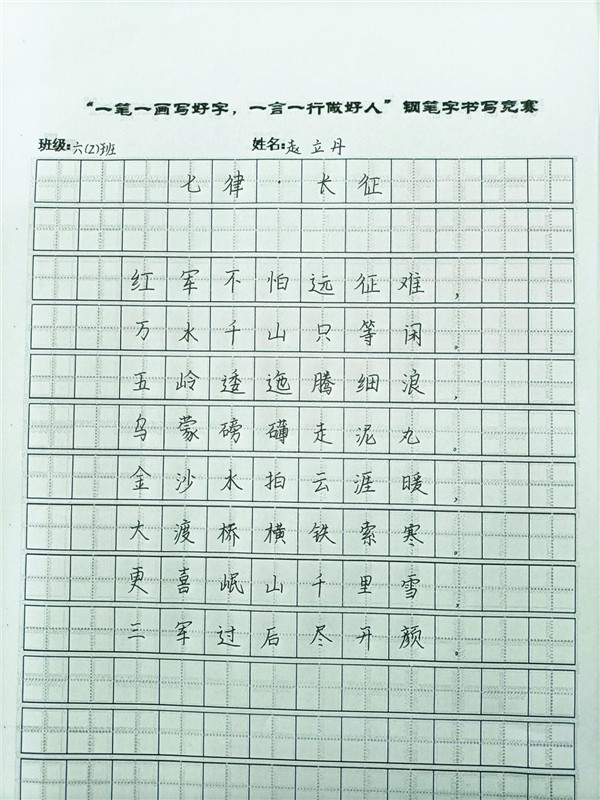 “一笔一画写好字，一言一行做好人”钢笔字书写竞赛
班级:六(2)班 姓名:赵立丹
七律·长征
红军不怕远征难，
万水千山只等闲。
五岭逶迤腾细浪，
乌蒙磅礴走泥丸。
金沙水拍云涯暖，
大渡桥横铁索寒。
更喜岷山千里雪，
三军过后尽开颜。